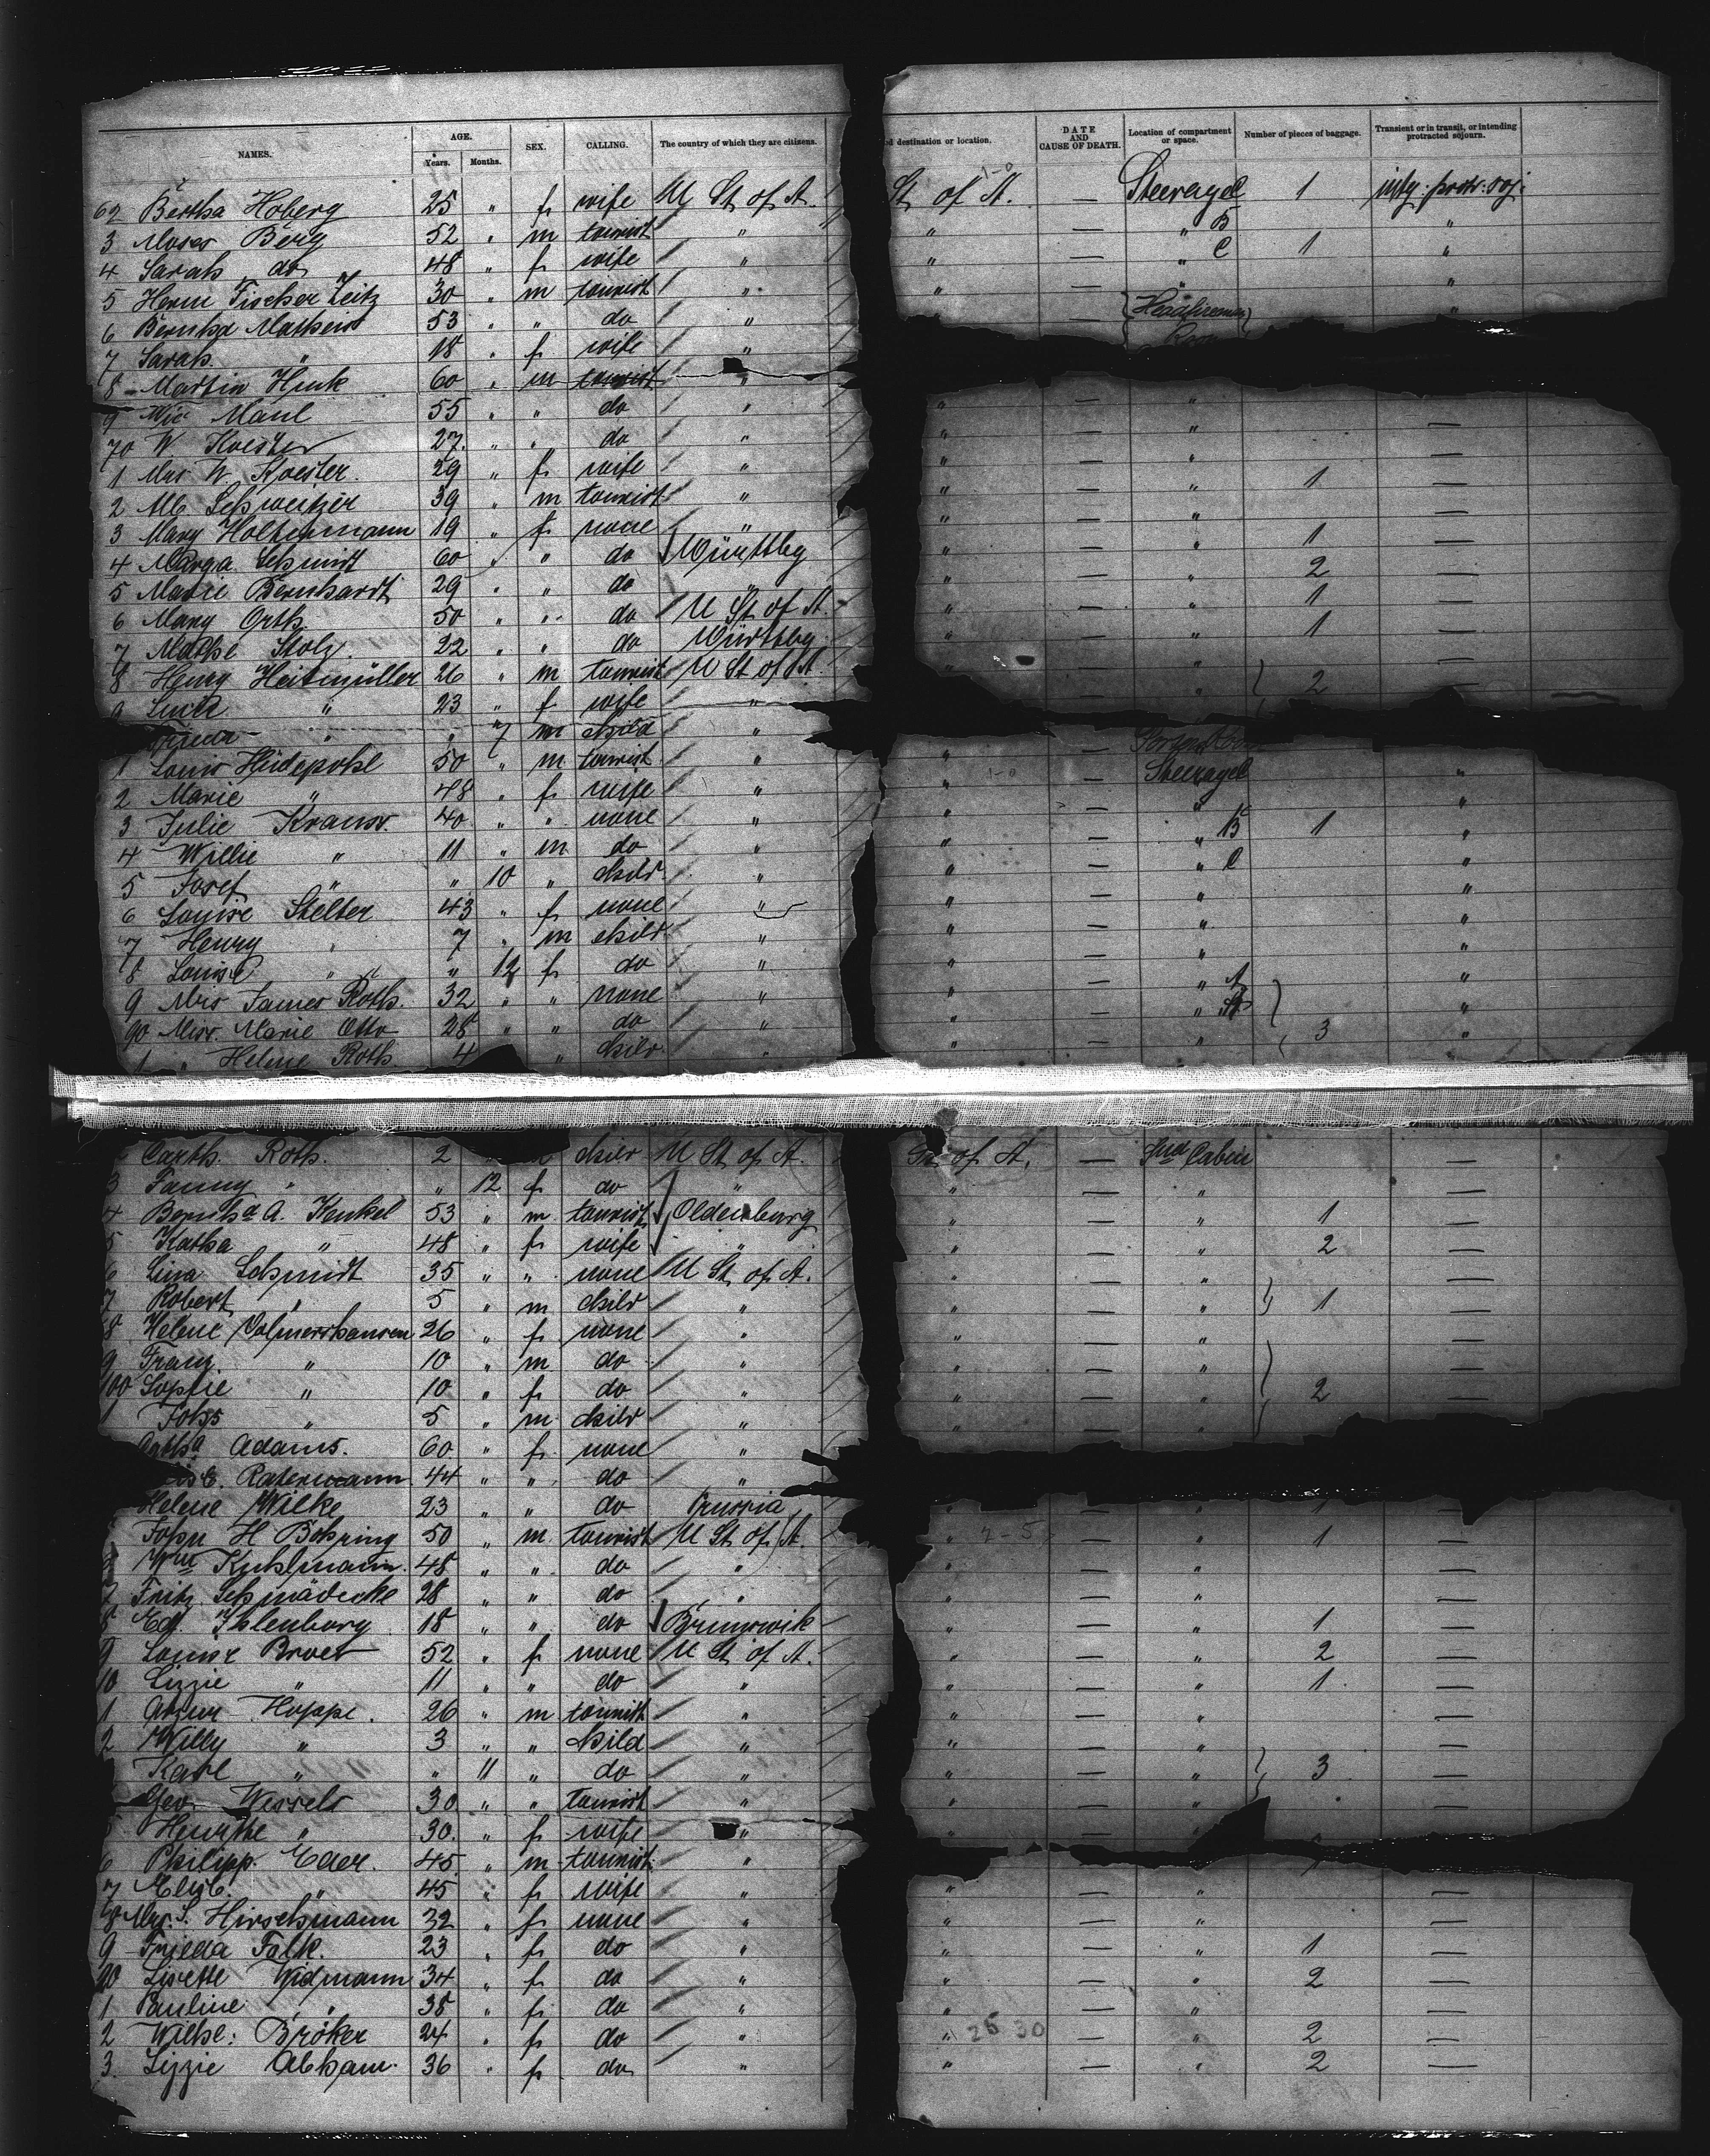 NAMES. AGE. Years. Months. SEX. CALLING. The country of which they are citizens. d destination or location. DATE AND CAUSE OF DEATH. Location of compartment or space. Number of pieces of baggage. Transient or in transit, or intending protracted sojourn.
62 Bertha Hoberg 25 " f wife U St of A. St of A. — Steerage 1 intg. protr. soj.
3 Moses Berg 52 " m tourist " " — " B "
4 Sarah do 48 " f wife " " — " C 1 "
5 Herm Fischer Zeitz 30 " m tourist " " — " "
6 Bernhd Matheis 53 " " do " — Headfireman "
7 Sarah " 18 " f wife " Room
8 Martin Huck 60 " m tourist "
9 Maul 55 " " do " " — " —
70 W Koester 27 " " do " " — " —
1 Mrs W. Koester. 29 " f wife " " — " —
2 Alb Schweitzer 39 " m tourist " " — " 1 —
3 Mary Holtermann 19 " f none " " — " —
4 Marga. Schmidt 60 " " do Württbg " — " 1 —
5 Marie Bernhardt 29 " " do " " — " 2 —
6 Mary Orth 50 " " do U St of A. " — " 1 —
7 Mathe Stolz 22 " " do Württbg. " — " 1 —
8 Henry Heitmüller 26 " m tourist U St of A. " — " —
9 " 23 " f wife " " — " 2
" " 7 m child "
1 Louis Hüdepohl 50 " m tourist " " —
2 Marie " 48 " f wife " " — Steerage "
3 Julie Kraus 40 " " none " " — " "
4 Willie " 11 " m do " " — " B 1 "
5 Josef " " 10 " child " " — " C "
6 Louise Stelter 43 " f none " " — " "
7 Henry " 7 " m child " " — " "
8 Louise " " 12 f do " " — " "
9 Mrs James Roth. 32 " " none " " — " A "
90 Miss. Marie Otto 28 " " do " " — " "
1 " Helene Roth 4 " child " " — " 3 "
Roth. 2 child U St of A. St of A. — 2nd Cabin —
3 Fanny " " 12 f do " " — " —
4 Bernhd A. Kenkel 53 " m tourist Oldenburg " — " 1 —
5 Katha " 48 " f wife " " — " 2 —
6 Lina Schmidt 35 " " none U St of A. " — " —
7 Robert " 5 " m child " " — " 1 —
8 Helene Volmershausen 26 " f none " " — " —
9 Franz " 10 " m do " " — " —
100 Sophie " 10 " f do " " — " 2 —
1 Johs " 5 " m child " " — " —
Adams. 60 " f none "
Ratermann 44 " " do "
Helene Wilke 23 " " do Prussia " — " 1 —
John H Bohring 50 " m tourist U St of A. " 2-5 — " 1 —
Wm Kuhlmann. 48 " " do " " — " —
7 Fritz Schmädecke 28 " " do " " — " —
8 Ed. Ihlenburg 18 " " do Brunswik " — " 1 —
9 Louise Broer 52 " f none U St of A. " — " 2 —
10 Lizzie " 11 " " do " " — " 1 —
1 Hoppe. 26 " m tourist " " — " —
2 Willy " 3 " " child " " — " —
Karl " " 11 " do " " — " 3 —
Geo Wessels 30 " " tourist " " — " —
5 " 30 " f wife " " — " —
6 Philipp Eder. 45 " m tourist "
7 Elisb. " 45 " f wife " " — " —
18 Mrs. S. Hirschmann 32 " f none " " — " —
9 Frieda Falk. 23 " f do " " — " 1 —
20 Lisette Widmann 34 " f do " " — " 2 —
1 Pauline " 38 " f do " " — " —
2 Wilhe: Bröker 24 " f do " " 26 30 — " 2 —
3 Lizzie Abham 36 " f do " " — " 2 —